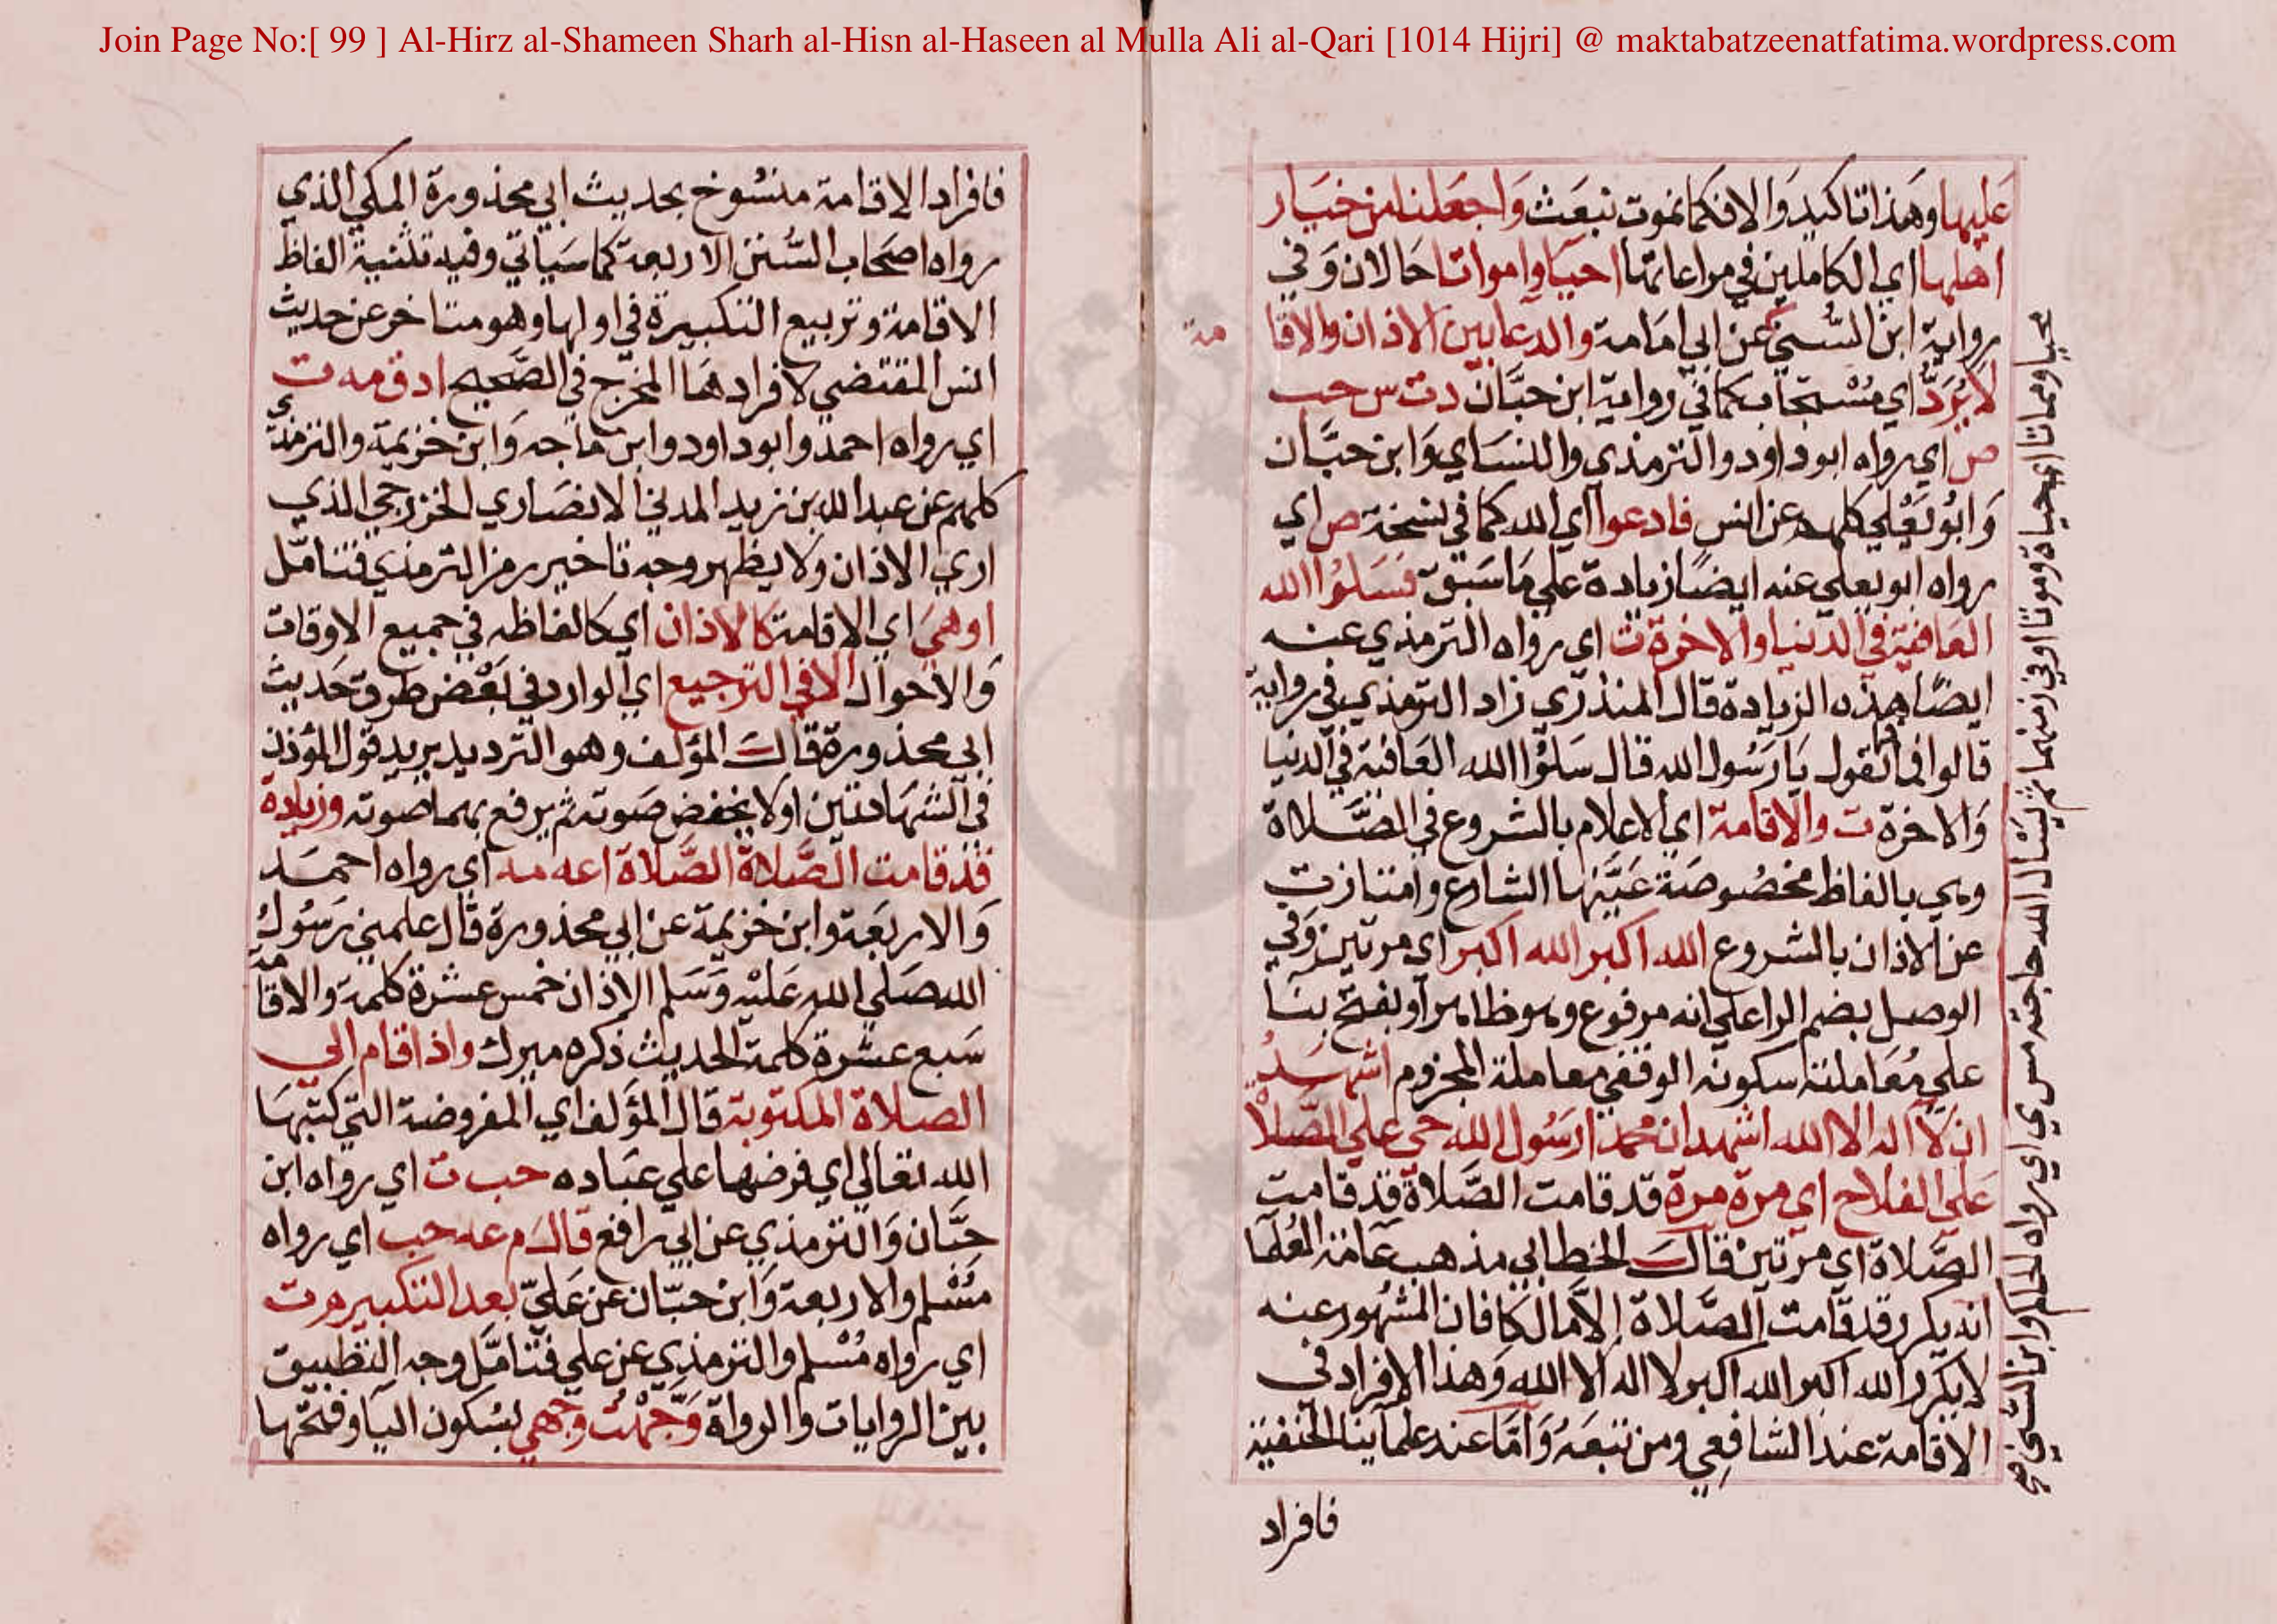 Join Page No:[ 99 ] Al-Hirz al-Shameen Sharh al-Hisn al-Haseen al Mulla Ali al-Qari [1014 Hijri] @ maktabatzeenatfatima.wordpress.com
عَليها وهَذا تاكيد وَالا فكما نموت نبعَث وَاجعَلنا من خيَار
اهلها اي الكاملين في مراعاتها احيَا وامواتا حَالان وَفي
رواية ابن السُّني عن ابي امَامة والدعا بين الاذان والاقا
مة
لا يُرَدُّ اي مُسْتجاب كما في رواية ابن حبَّان د ت س حب
ص اي رواه ابو داود والترمذي والنسَاي وَابن حبَّان
وَابُو يَعْلي كلهم عن انس فادعوا اي الله كما في نسخة ص اي
رواه ابو يعلي عنه ايضًا زيادة علي مَا سَبق فسَلوُا الله
العَافية في الدنيا والاخرة ت اي رواه الترمذي عنه
ايضًا هذه الزيادة قال المنذري زاد الترمذي في رواية
قالوا فما نقول يَا رَسُول الله قال سَلوُا الله العَافية في الدنيا
وَالاخرة ت والاقامة اي الاعلام بالشروع في الصَّلاة
وهي بالفاظ مخصُوصَة عَيَّنها الشارع وامتازت
عن الاذان بالشروع الله اكبر الله اكبر اي مرتين وَفي
الوصل بضم الرا علي انه مرفوع وهو ظاهر او بفتح بنَا
علي مُعَاملة سكونه الوقفي معاملة المجزوم اشهَدُ
ان لا اله الا الله اشهد ان محمدا رَسُول الله حي علي الصَّلاة
عَلي الفلاح اي مرة مرة قد قامت الصَّلاة قد قامت
الصَّلاة اي مرتين قالَ الخطابي مذهب عَامة العُلما
انه يكرر قد قامت الصَّلاة إلاَّ مالكا فان المشهُور عنه
لا يكرر الله اكبر الله اكبر لا اله الا الله وَهذا الافراد في
الاقامة عند الشافعي ومن تبعَهُ وَامَّا عند علماينا الحنفية
فافراد
محيا ومماتا اي حياة وموتا او في زمنهما ثم يسْال الله حاجته مس ي اي رواه الحاكم وابن السُّني
فافراد الاقامة منسُوخ بحديث ابي محذورة المكي الذي
رواه اصحَاب السُّنن الاربعة كما سَياتي وفيه تثنية الفاظ
الاقامة وتربيع التكبيرة في اولها وهو متاخر عن حديث
انس المقتضي لافرادهَا المخرج في الصَّحيح ا د ق مه ت
اي رواه احمد وابو داود وابن مَاجه وَابن خزيمة والترمذي
كلهم عن عبد الله بن زيد المدني الانصَاري الخزرجي الذي
اري الاذان ولا يظهر وجه تاخير رمز الترمذي فتنامَّل
او هي اي الاقامة كالاذان اي كالفاظه في جميع الاوقات
وَالاحوال الا في الترجيع اي الوارد في بَعْض طرق حَديث
ابي محذورة قالَ المؤلف وهو الترديد يريد قول المؤذن
في الشهَادتين اولا يخفض صَوته ثم يرفع بهما صوته وزيادة
قد قامت الصَّلاة الصَّلاة ا عه مه اي رواه احمَد
وَالاربعَة وابن خزيمة عن ابي محذورة قال علمني رَسُولُ
الله صَلي الله عَليْه وَسَلم الاذان خمس عشرة كلمة والاقامة
سَبع عشرة كلمة الحديث ذكره ميرك واذا قام الي
الصلاة المكتوبة قال المؤلف اي المفروضة التي كتبهَا
الله تعَالي اي فرضها علي عبَاده حب ت اي رواه ابن
حبَّان وَالترمذي عن ابي رافع قالَ م عه حب اي رواه
مسْلم والاربعة وَابن حبّان عن عَليّ بعد التكبير م ت
اي رواه مُسْلم والترمذي عن علي فتنامَّل وجه التطبيق
بين الروايات والرواة وَجَّهْتُ وجهي بسُكون اليا وفتحها